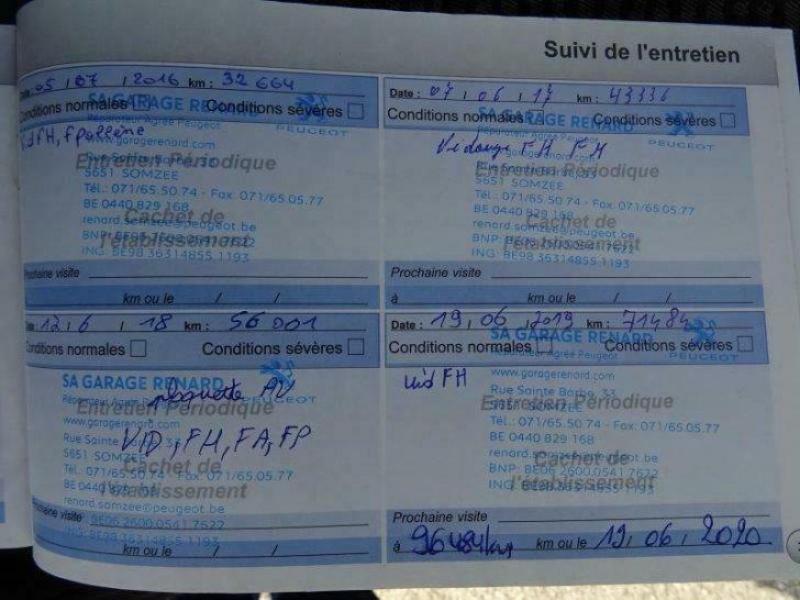 Suivi de l'entretien
Date : 05 / 07 / 2016 km : 32 664
Conditions normales Conditions sévères
SA GARAGE RENARD
Réparateur Agréé Peugeot
PEUGEOT
Vid FH, F pollène
www.garagerenard.com
Entretien Périodique
Rue Sainte Barbe, 33
5651 SOMZEE
Tél.: 071/65.50.74 - Fax: 071/65.05.77
BE 0440 829 168
Cachet de
renard.somzee@peugeot.be
l'établissement
BNP: BE06 2600.0541.7622
ING: BE98 36314855 1193
Prochaine visite
km ou le / /
Date : 07 / 06 / 17 km : 43336
Conditions normales Conditions sévères
SA GARAGE RENARD
Réparateur Agréé Peugeot
PEUGEOT
Vidange FH FH
www.garagerenard.com
Entretien Périodique
Rue Sainte Barbe, 33
5651 SOMZEE
Tél.: 071/65.50.74 - Fax: 071/65.05.77
BE 0440 829 168
Cachet de
renard.somzee@peugeot.be
l'établissement
BNP: BE06 2600.0541.7622
ING: BE98 36314855 1193
Prochaine visite
à km ou le / /
12 / 6 / 18 km : 56 001
Conditions normales Conditions sévères
SA GARAGE RENARD
plaquette AV
Réparateur Agréé
PEUGEOT
Entretien Périodique
www.garagerenard.com
VID, FH, FA, FP
Rue Sainte 33
5651 SOMZEE
Cachet de
Tél.: 071/65.50.74 - Fax: 071/65.05.77
BE 0440 829 168
l'établissement
renard.somzee@peugeot.be
Prochaine visite BE06 2600.0541.7622
km ou le / /
Date : 19 / 06 / 2019 km : 71484
Conditions normales Conditions sévères
SA GARAGE RENARD
Réparateur Agréé Peugeot
PEUGEOT
vid FH
www.garagerenard.com
Rue Sainte Barbe, 33
Entretien Périodique
5651 SOMZEE
Tél.: 071/65.50.74 - Fax: 071/65.05.77
BE 0440 829 168
renard.somzee@peugeot.be
Cachet de
BNP: BE06 2600.0541.7622
l'établissement
ING: BE98 36314855 1193
Prochaine visite
à 96484 km km ou le 19 / 06 / 2020